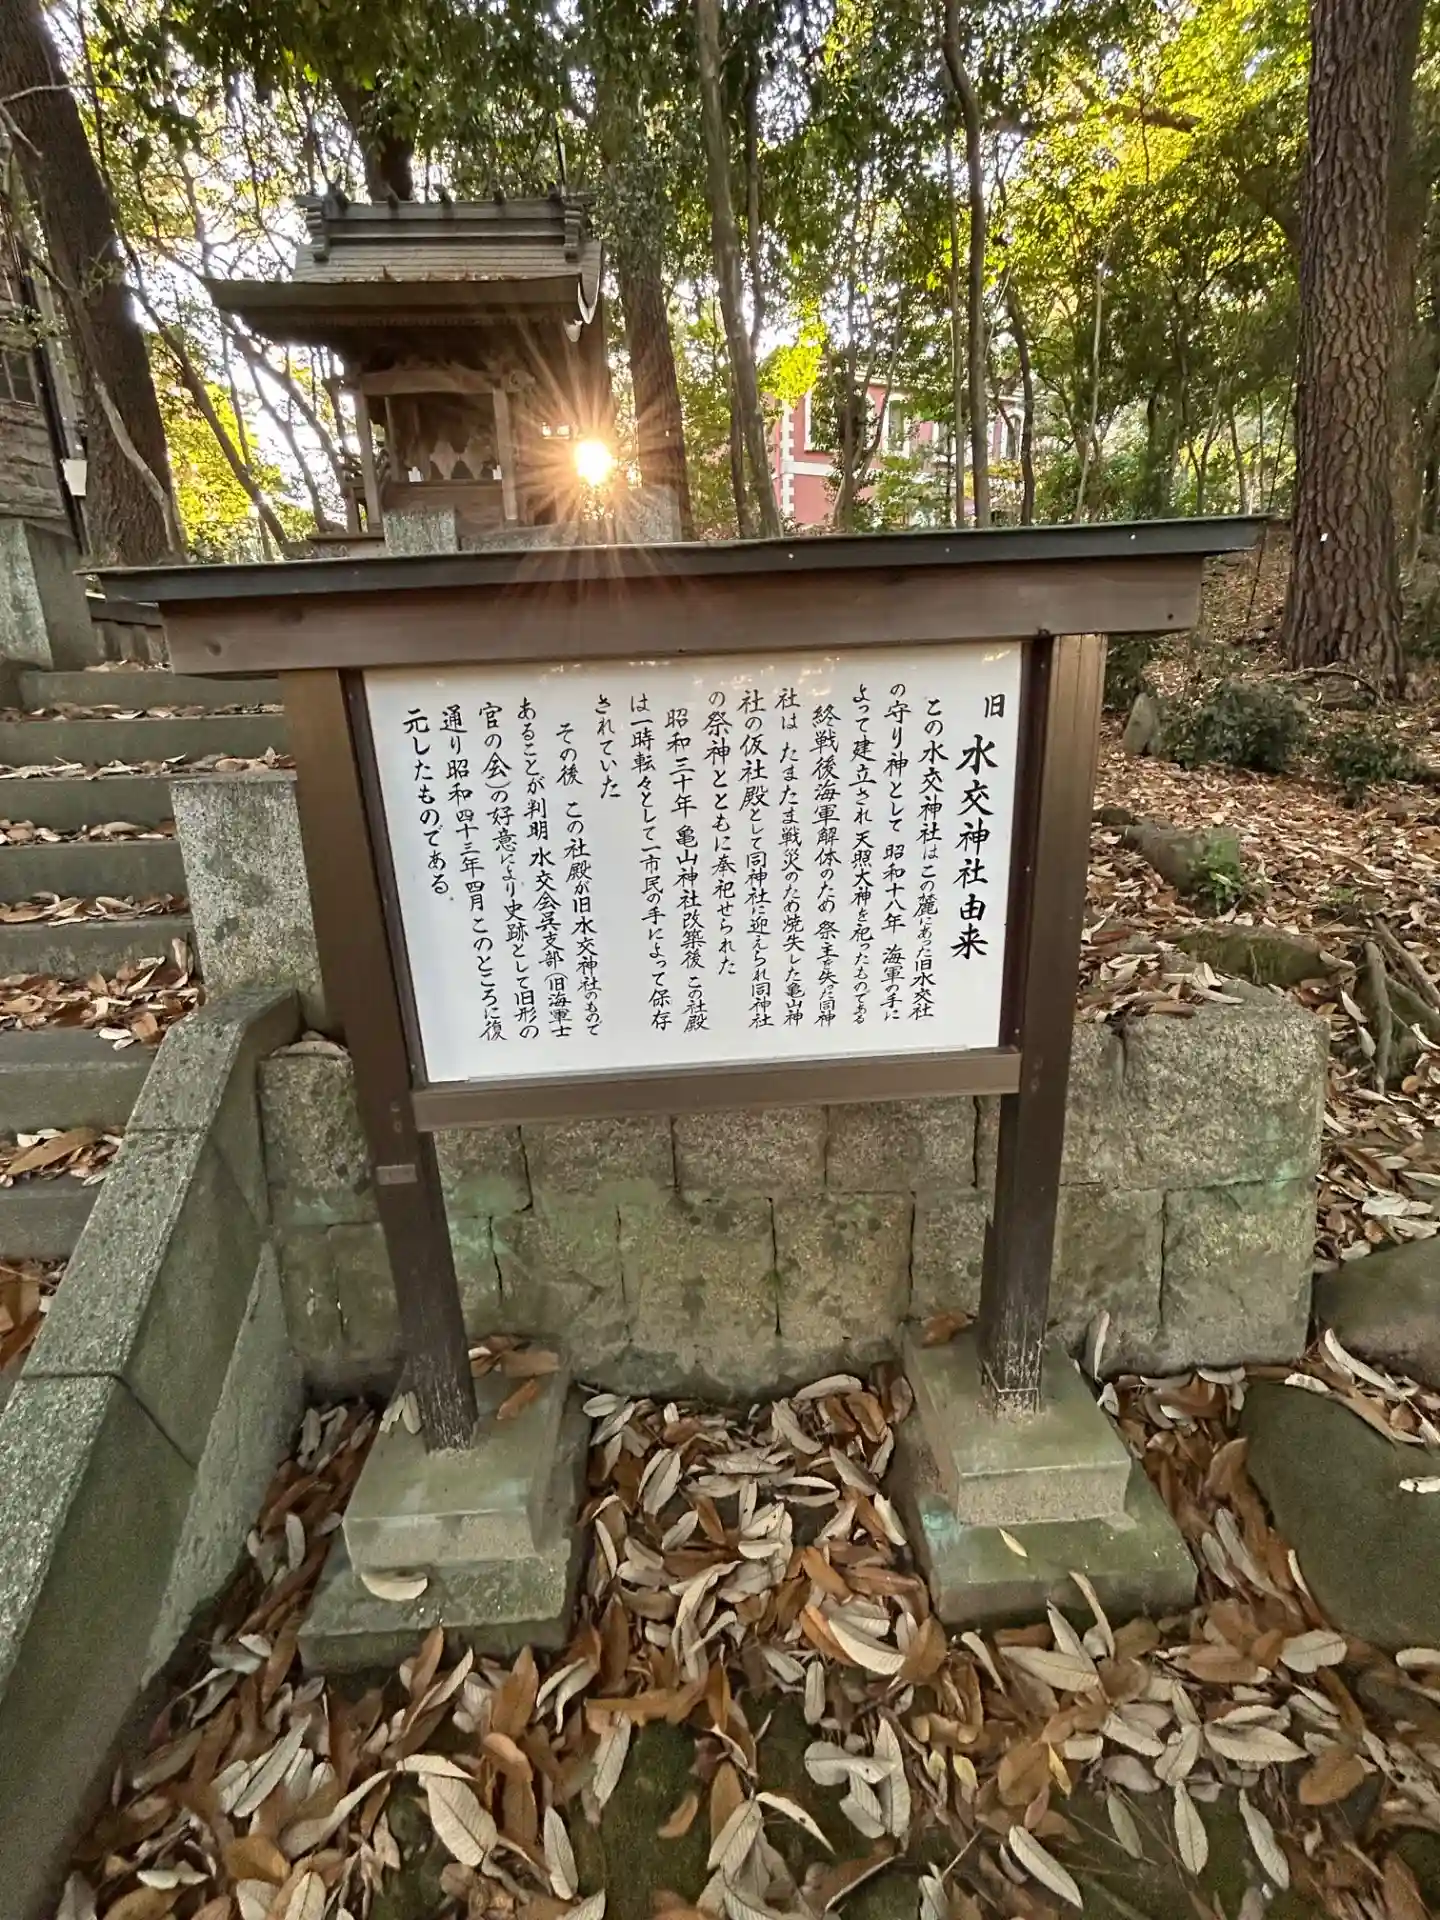 旧 水交神社由来
この水交神社はこの麓にあった旧水交社
の守り神として 昭和十八年 海軍の手に
よって建立され 天照大神を祀ったものである
終戦後海軍解体のため 祭主を失った同神
社は たまたま戦災のため焼失した亀山神
社の仮社殿として同神社に迎えられ同神社
の祭神とともに奉祀せられた
昭和三十年 亀山神社改築後 この社殿
は一時転々として一市民の手によって保存
されていた
その後 この社殿が旧水交神社のもので
あることが判明 水交会呉支部(旧海軍士
官の会)の好意により史跡として旧形の
通り昭和四十三年四月 このところに復
元したものである